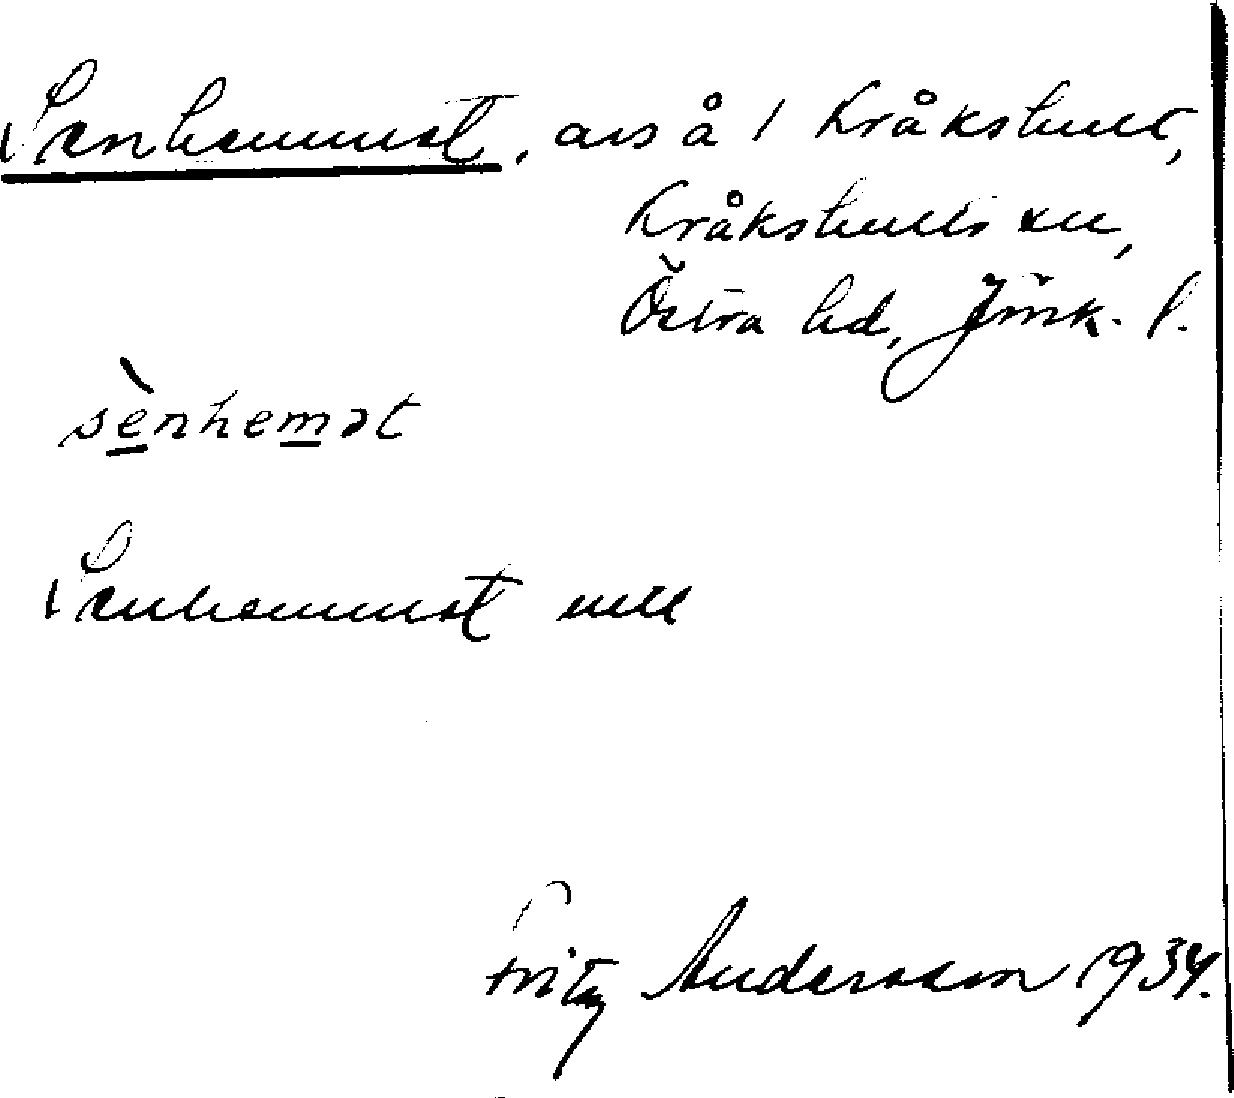 Stenhemmet, avs å 1 Kråkshult,
Kråkshults sn,
Östra hd, Jönk. l.
sènhemət
Stenhemmet
Fritz Andersson 1934.